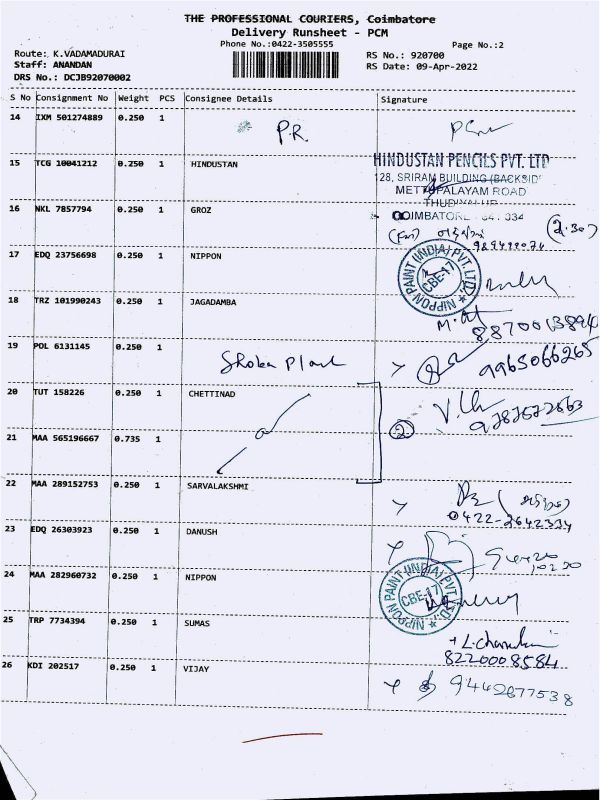 THE PROFESSIONAL COURIERS, Coimbatore
Delivery Runsheet - PCM
Phone No.:0422-3505555
Page No.:2
Route: K.VADAMADURAI
RS No.: 920700
Staff: ANANDAN
RS Date: 09-Apr-2022
DRS No.: DCJB92070002
S No Consignment No Weight PCS Consignee Details Signature
14 IXM 501274889 0.250 1 P.R.
15 TCG 10041212 0.250 1 HINDUSTAN
HINDUSTAN PENCILS PVT. LTD
128, SRIRAM BUILDING (BACKSID
METTUPALAYAM ROAD
16 NKL 7857794 0.250 1 GROZ
COIMBATORE - 641 034
(2.30)
17 EDQ 23756698 0.250 1 NIPPON
NIPPON PAINT (INDIA) PVT. LTD. CBE-17
18 TRZ 101990243 0.250 1 JAGADAMBA
19 POL 6131145 0.250 1
9965066265
20 TUT 158226 0.250 1 CHETTINAD
2
21 MAA 565196667 0.735 1
22 MAA 289152753 0.250 1 SARVALAKSHMI
0422-2642334
23 EDQ 26303923 0.250 1 DANUSH
24 MAA 282960732 0.250 1 NIPPON
NIPPON PAINT (INDIA) PVT. LTD. CBE-17
25 TRP 7734394 0.250 1 SUMAS
8220008584
26 KDI 202517 0.250 1 VIJAY
9442677538